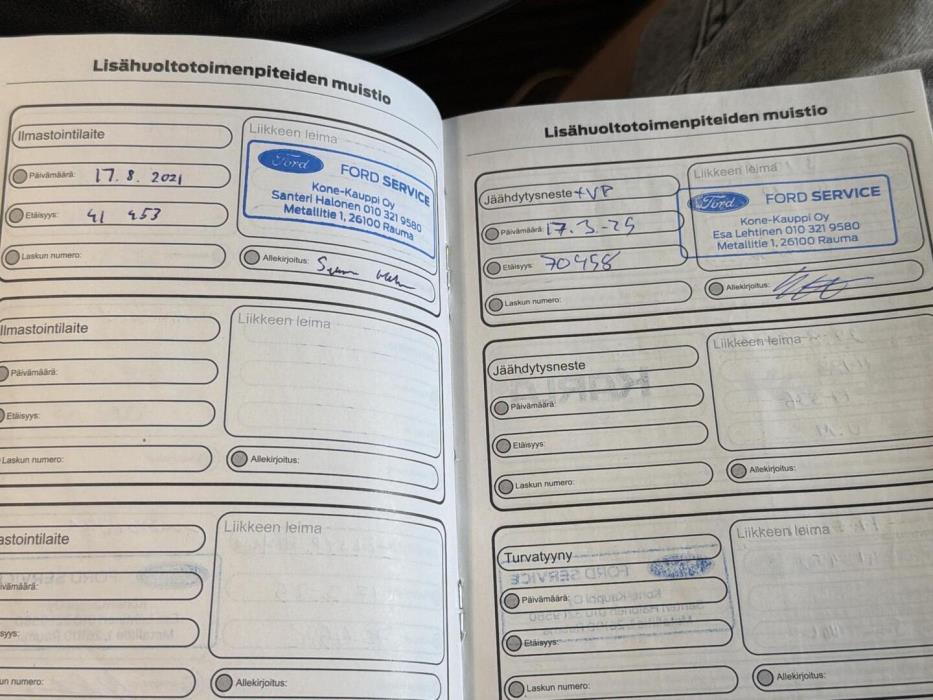 Lisähuoltotoimenpiteiden muistio
Ilmastointilaite
Päivämäärä: 17. 8. 2021
Etäisyys: 41 453
Laskun numero:
Liikkeen leima
Ford FORD SERVICE
Kone-Kauppi Oy
Santeri Halonen 010 321 9580
Metallitie 1, 26100 Rauma
Allekirjoitus:
Ilmastointilaite
Päivämäärä:
Etäisyys:
Laskun numero:
Liikkeen leima
Allekirjoitus:
astointilaite
ivämäärä:
syys:
un numero:
Liikkeen leima
Allekirjoitus:
Lisähuoltotoimenpiteiden muistio
Jäähdytysneste + VP
Päivämäärä: 17.3.-25
Etäisyys: 70458
Laskun numero:
Liikkeen leima
Ford FORD SERVICE
Kone-Kauppi Oy
Esa Lehtinen 010 321 9580
Metallitie 1, 26100 Rauma
Allekirjoitus:
Jäähdytysneste
Päivämäärä:
Etäisyys:
Laskun numero:
Liikkeen leima
Allekirjoitus:
Turvatyyny
Päivämäärä:
Etäisyys:
Laskun numero:
Liikkeen leima
Allekirjoitus: